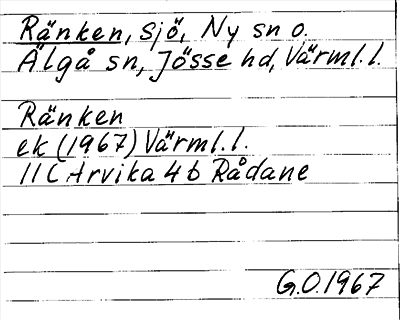 Ränken, sjö, Ny sn o.
Älgå sn, Jösse hd, Värml. l.
Ränken
ek (1967) Värml. l.
11C Arvika 4b Rådane
G.O. 1967